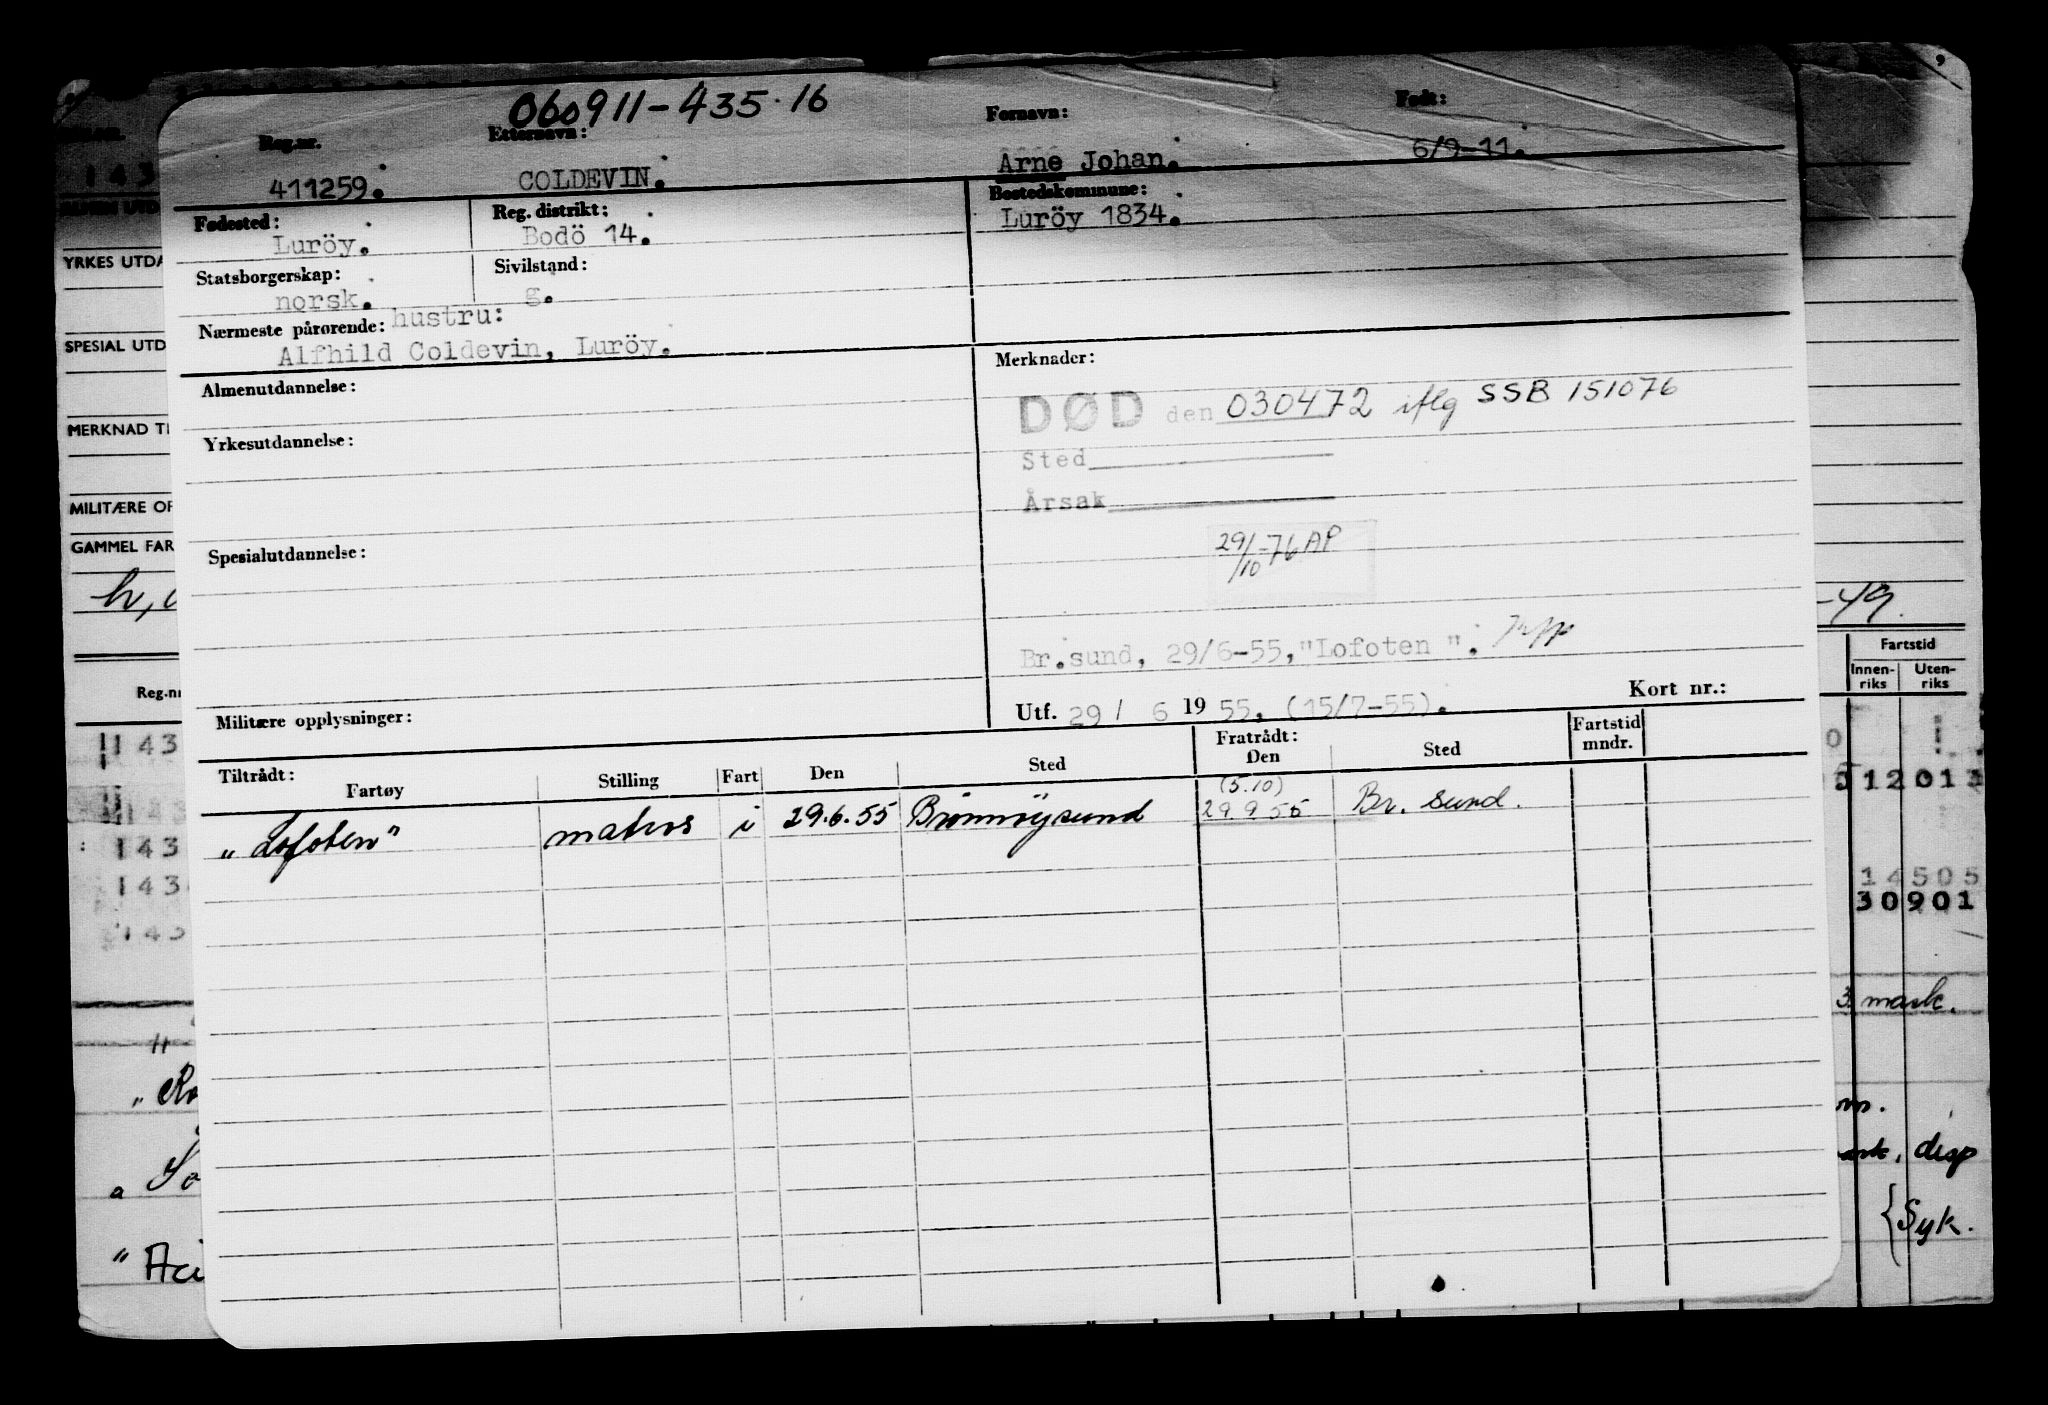 060911-435.16
Reg.nr. Etternavn: Fornavn: Født:
411259. COLDEVIN. Arne Johan. 6/9-11.
Fødested: Reg. distrikt: Bostedskommune:
Luröy. Bodö 14. Luröy 1834.
Statsborgerskap: Sivilstand:
norsk. g.
Nærmeste pårørende: hustru:
Alfhild Coldevin, Luröy.
Almenutdannelse:
Yrkesutdannelse:
Spesialutdannelse:
Militære opplysninger:
Merknader:
DØD den 030472 iflg SSB 151076
Sted
Årsak
29/10-76 AP
Br.sund, 29/6-55, "Lofoten ".
Utf. 29/ 6 1955. (15/7-55). Kort nr.:
Tiltrådt: Fratrådt: Fartstid
Fartøy Stilling Fart Den Sted Den Sted mndr.
(5.10)
"Lofoten" matros i 29.6.55 Brønnøysund 29.9 55 Br. sund.
1 43
YRKES UTDA
SPESIAL UTD
MERKNAD TI
MILITÆRE OP
GAMMEL FAR
h,
Reg.nr
143
143
143
143
143
"
" So
" Aci
-49.
Fartstid
Innen-riks Uten-riks
12013
14505
30901
3 mask.
m.
ask, disp
{Syk.